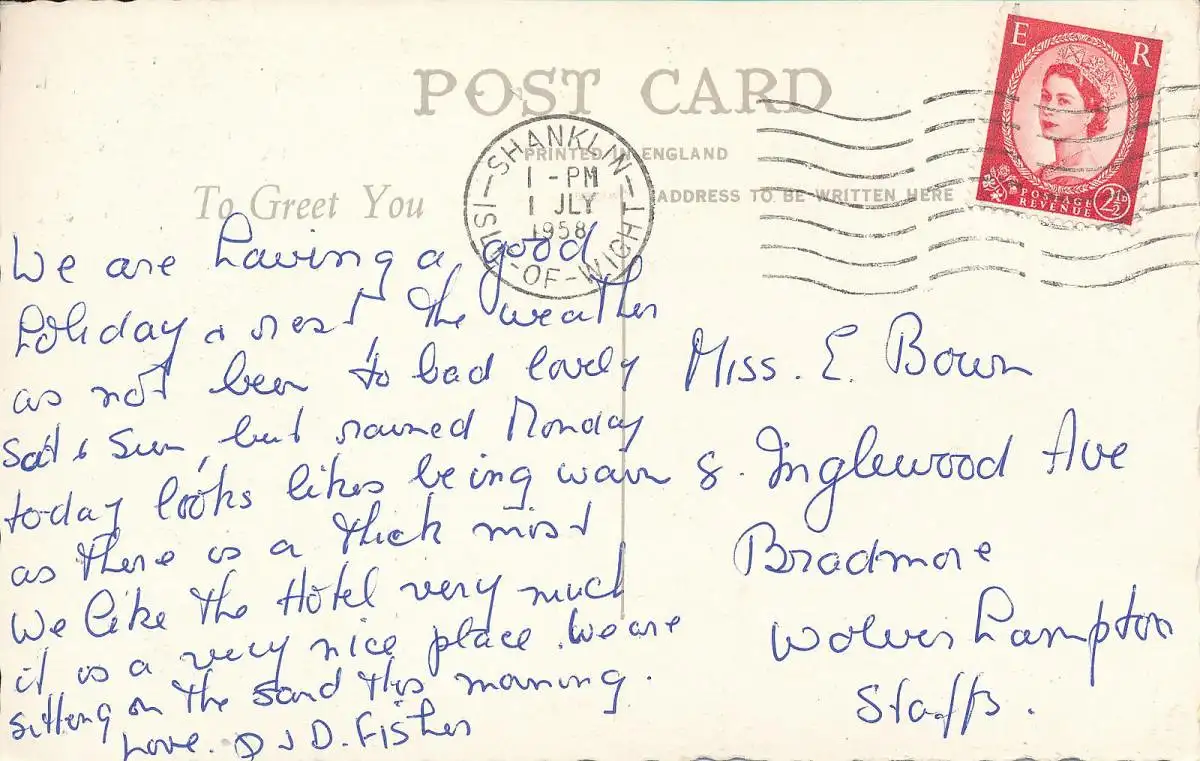 POST CARD
PRINTED IN ENGLAND
SHANKLIN
1 - PM
1 JLY
1958
ISLE-OF-WIGHT
E R
POSTAGE
REVENUE
2½D
To Greet You
ADDRESS TO BE WRITTEN HERE
We are having a good
holiday & rest, the weather
as not been to bad lovely
Sat & Sun, but rained Monday
today looks likes being warm
as there is a thick mist
We like the Hotel very much
it is a very nice place. We are
sitting on the sand this morning.
Love. D J D. Fisher
Miss. E. Bown
8. Inglewood Ave
Bradmore
Wolverhampton
Staffs.